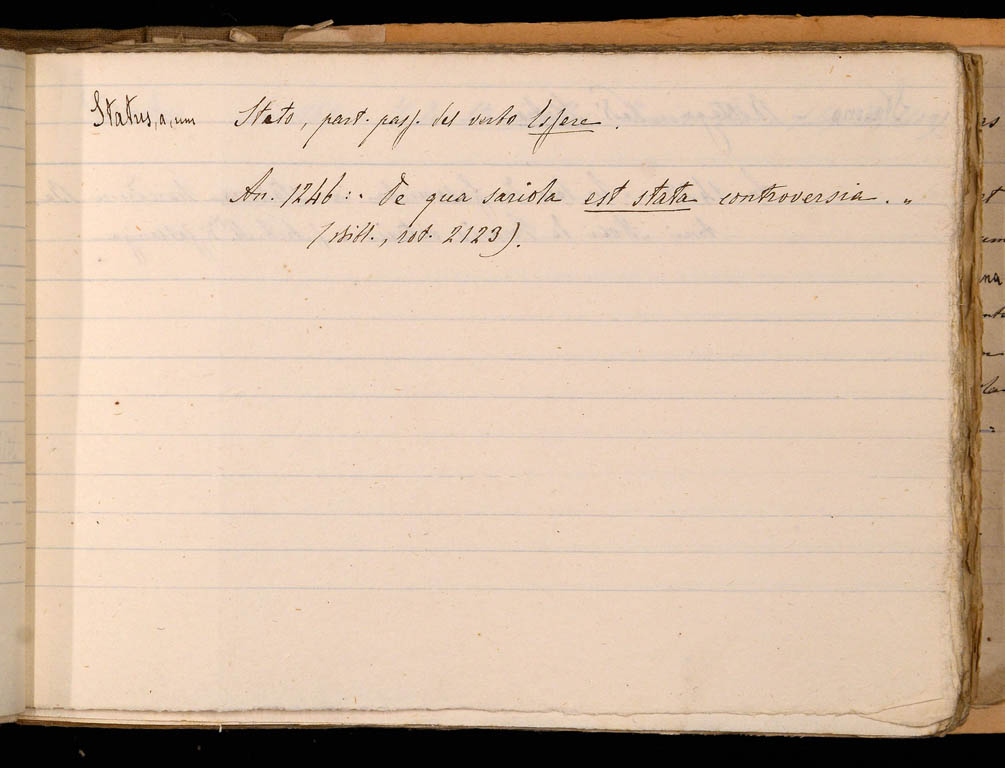 Status, a, um Stato, part. pass. del verbo Essere.
An. 1246: "De qua sariola est stata controversia."
(Bibl., rot. 2123).